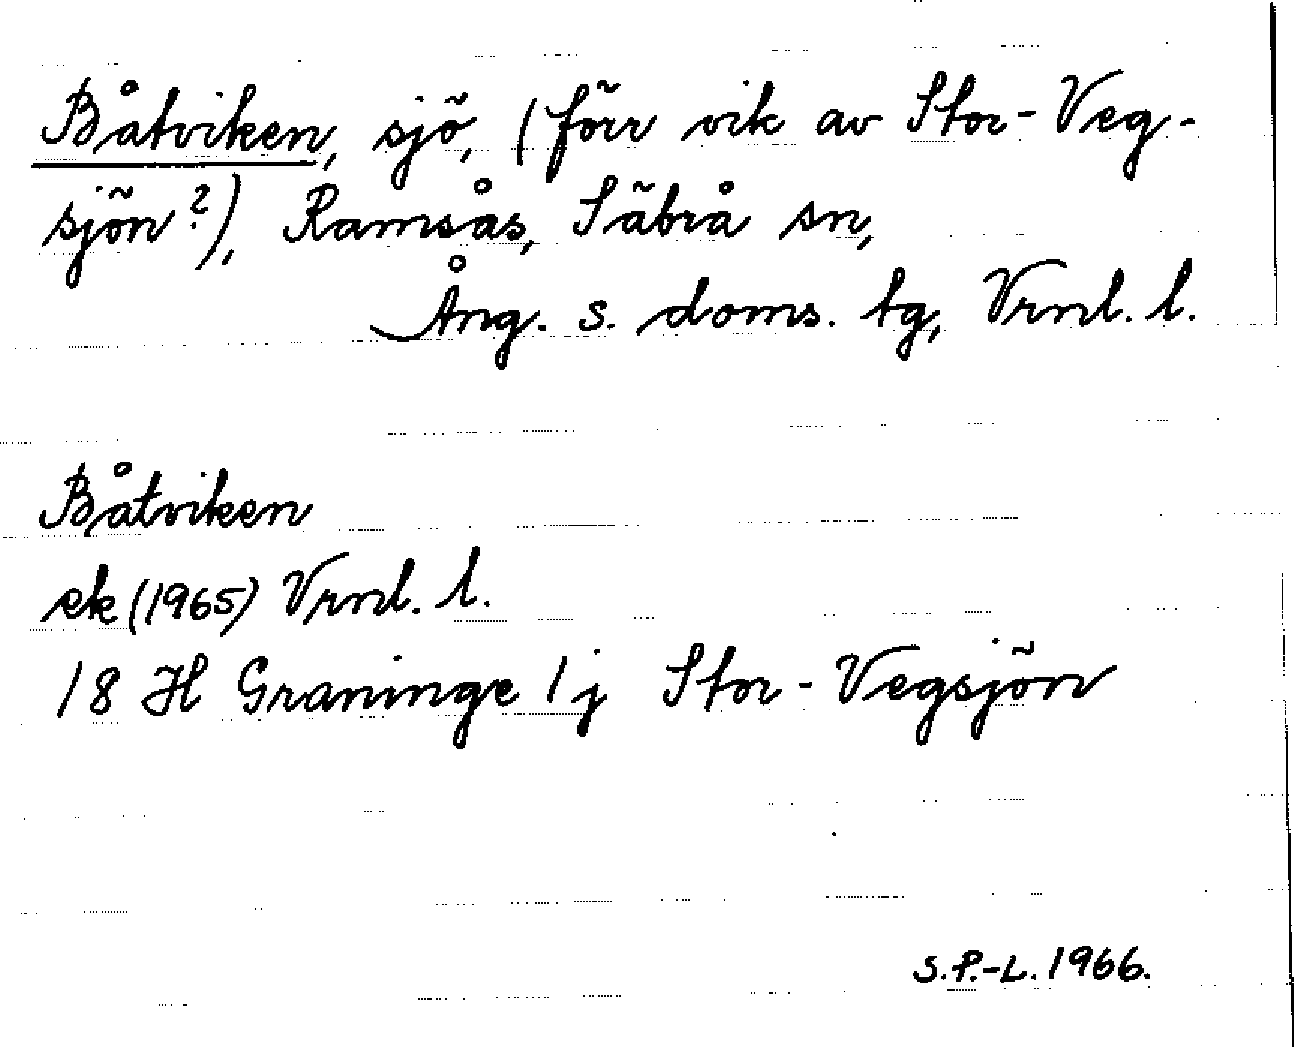 Båtviken, sjö, (förr vik av Stor-Veg-
sjön?), Ramsås, Säbrå sn,
Ång. s. doms. tg, Vrnl. l.
Båtviken
ek (1965) Vrnl. l.
18 H Graninge 1j Stor-Vegsjön
S.P.-L. 1966.